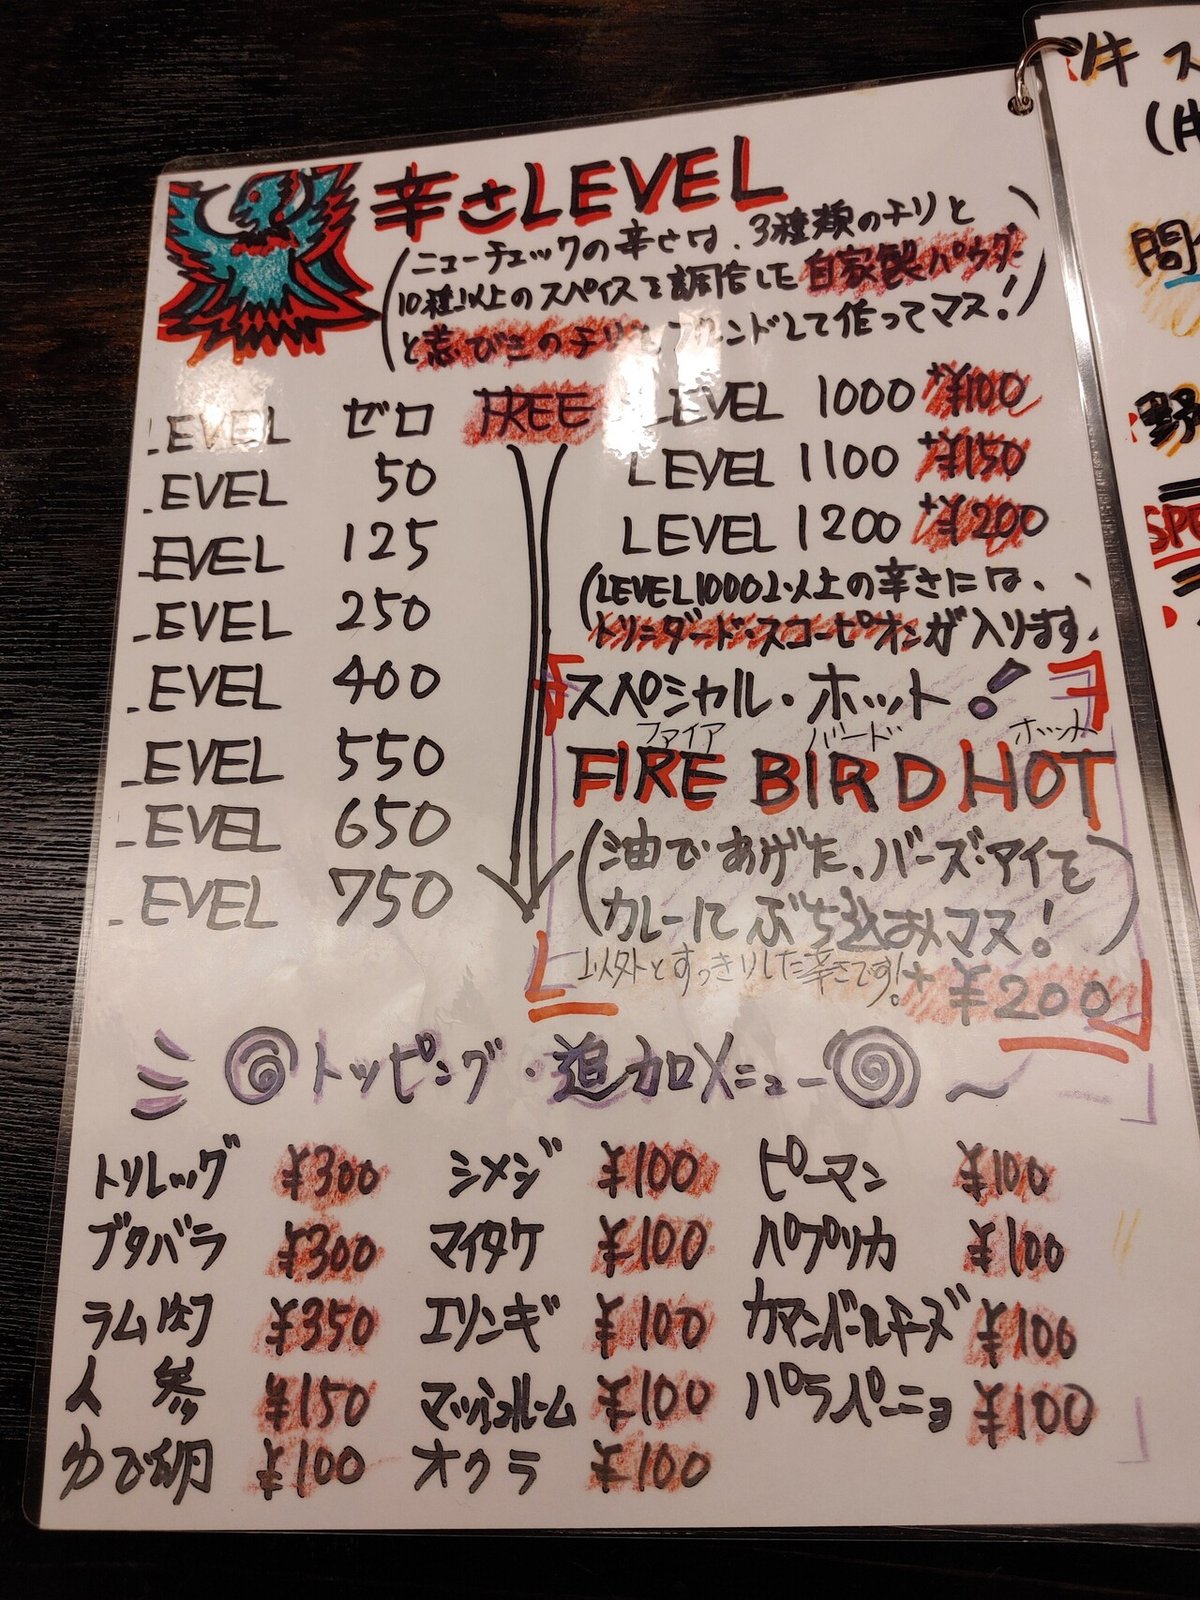 辛さLEVEL
(ニューチェックの辛さは、3種類のチリと
10種以上のスパイスを調合した自家製パウダー
と 忘びきのチリをブレンドして作ってマス!)
LEVEL ゼロ FREE
LEVEL 50
LEVEL 125
LEVEL 250
LEVEL 400
LEVEL 550
LEVEL 650
LEVEL 750
LEVEL 1000 +¥100
LEVEL 1100 +¥150
LEVEL 1200 +¥200
(LEVEL1000以上の辛さには、
トリニダード・スコーピオンが入ります)
スペシャル・ホット!
ファイア バード ホット
FIRE BIRD HOT
(油であげた、バーズ・アイを
カレーにぶち込みマス!)
以外とすっきりした辛さです! +¥200
トッピング・追加メニュー
トリレッグ ¥300 シメジ ¥100 ピーマン ¥100
ブタバラ ¥300 マイタケ ¥100 パプリカ ¥100
ラム肉 ¥350 エリンギ ¥100 カマンベールチーズ ¥100
人参 ¥150 マッシュルーム ¥100 ハラペーニョ ¥100
ゆで卵 ¥100 オクラ ¥100
ソキ ス
問
野
SPE